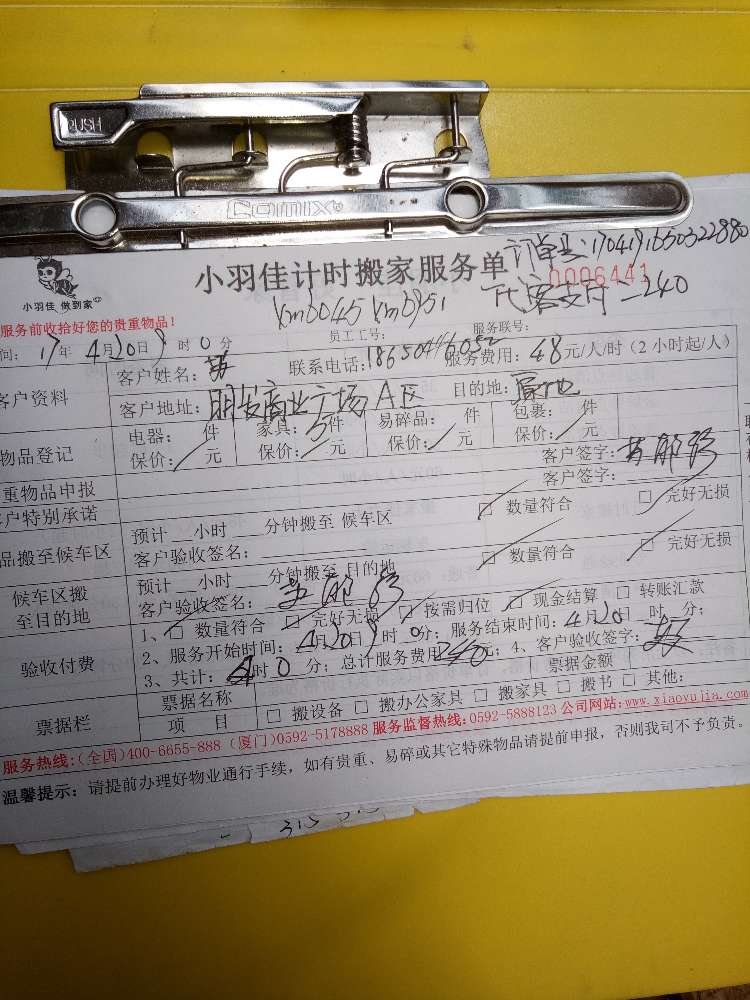 PUSH
Comix
订单号:1704191650322880
小羽佳 做到家
小羽佳计时搬家服务单
0006441
xm0045 xm0951
代客支付=240
服务前收拾好您的贵重物品!
员工工号:
服务联号:
间: 17年 4月20日 9时 0分
客户姓名:
联系电话:
服务费用: 48元/人/时(2小时起/人)
客户资料
客户地址: 明发商业广场A区 目的地: 原地
物品登记
电器: 件 家具: 5件 易碎品: 件 包裹: 件
保价: 元 保价: 元 保价: 元 保价: 元
重物品申报
客户签字:
客户特别承诺
客户签字:
品搬至候车区
预计__小时__分钟搬至 候车区 □ 数量符合 □ 完好无损
客户验收签名:
候车区搬
至目的地
预计__小时__分钟搬至 目的地 □ 数量符合 □ 完好无损
客户验收签名:
验收付费
1、□ 数量符合 □ 完好无损 □ 按需归位 □ 现金结算 □ 转账汇款
2、服务开始时间: 4月20日9时0分; 服务结束时间: 4月20日__时__分;
3、共计: 时0分; 总计服务费用240元; 4、客户验收签字:
票据栏
票据名称
票据金额
项 目
□ 搬设备 □ 搬办公家具 □ 搬家具 □ 搬书 □ 其他:
服务热线:(全国)400-6655-888 (厦门)0592-5178888 服务监督热线:0592-5888123 公司网站:www.xiaoyujia.com
温馨提示: 请提前办理好物业通行手续,如有贵重、易碎或其它特殊物品请提前申报,否则我司不予负责。